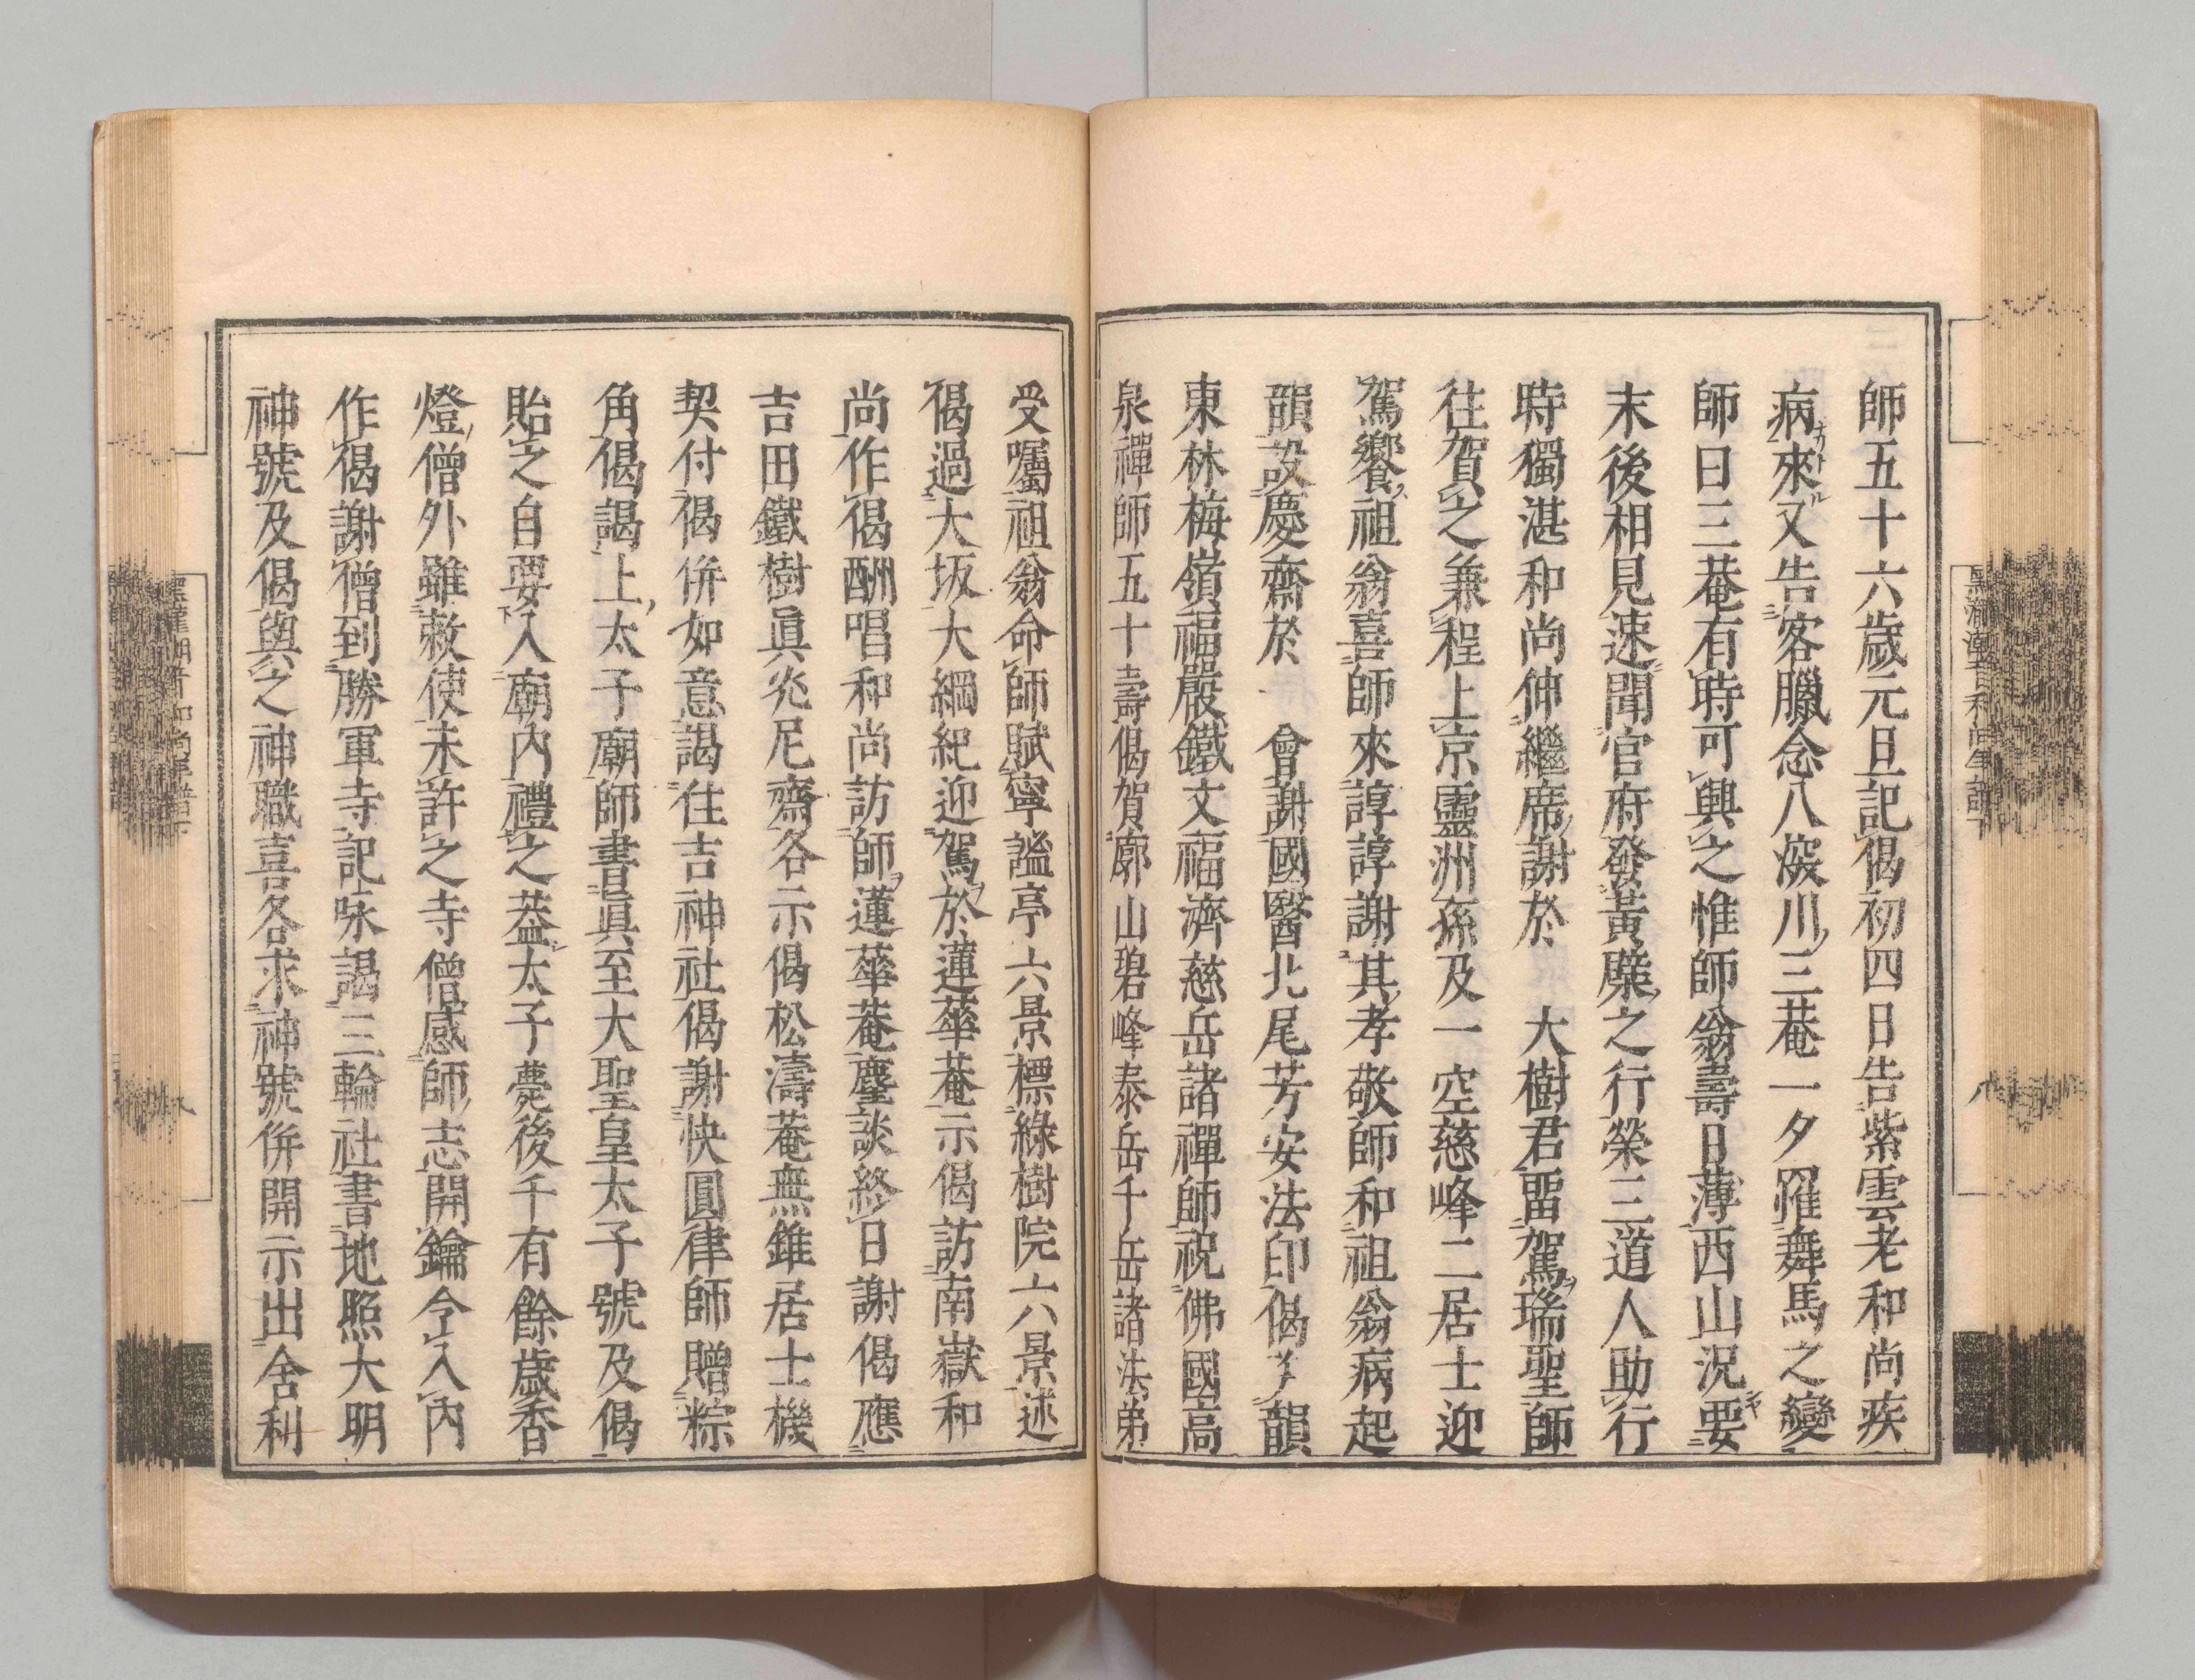 師五十六歲元旦記偈初四日告紫雲老和尚疾
病來又告客臘念八涖川三菴一夕罹舞馬之變
師曰三菴有時可興之惟師翁壽日薄西山況要
末後相見速聞官府發黃檗之行榮三道人助行
時獨湛和尚仲繼席謝於 大樹君留駕瑞聖師
往賀之兼程上京靈洲孫及一空慈峰二居士迎
駕饗祖翁喜師來諄諄謝其孝敬師和祖翁病起
韻設慶齋於 會謝國醫北尾芳安法印偈予韻
東林梅嶺福嚴鐵文福濟慈岳諸禪師祝佛國高
泉禪師五十壽偈賀廓山碧峰泰岳千岳諸法弟
受囑祖翁命師賦寧謐亭六景標綠樹院六景述
偈過大坂大綱紀迎駕於蓮華菴示偈訪南嶽和
尚作偈酬唱和尚訪師蓮華菴麈談終日謝偈應
吉田鐵樹眞兆尼齋各示偈松濤菴無錐居士機
契付偈併如意謁住吉神社偈謝快圓律師贈粽
角偈謁上太子廟師書眞至大聖皇太子號及偈
貽之自要入廟內禮之蓋太子薨後千有餘歲香
燈僧外雖敕使未許之寺僧感師志開鑰令入內
作偈謝僧到勝軍寺記咏謁三輪社書地照大明
神號及偈與之神職喜各求神號併開示出舍利